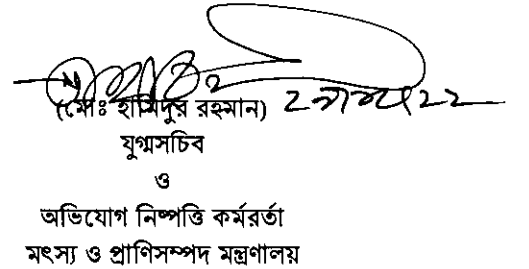 (মোঃ হামিদুর রহমান)
যুগ্মসচিব
ও
অভিযোগ নিষ্পত্তি কর্মরর্তা
মৎস্য ও প্রাণিসম্পদ মন্ত্রণালয়